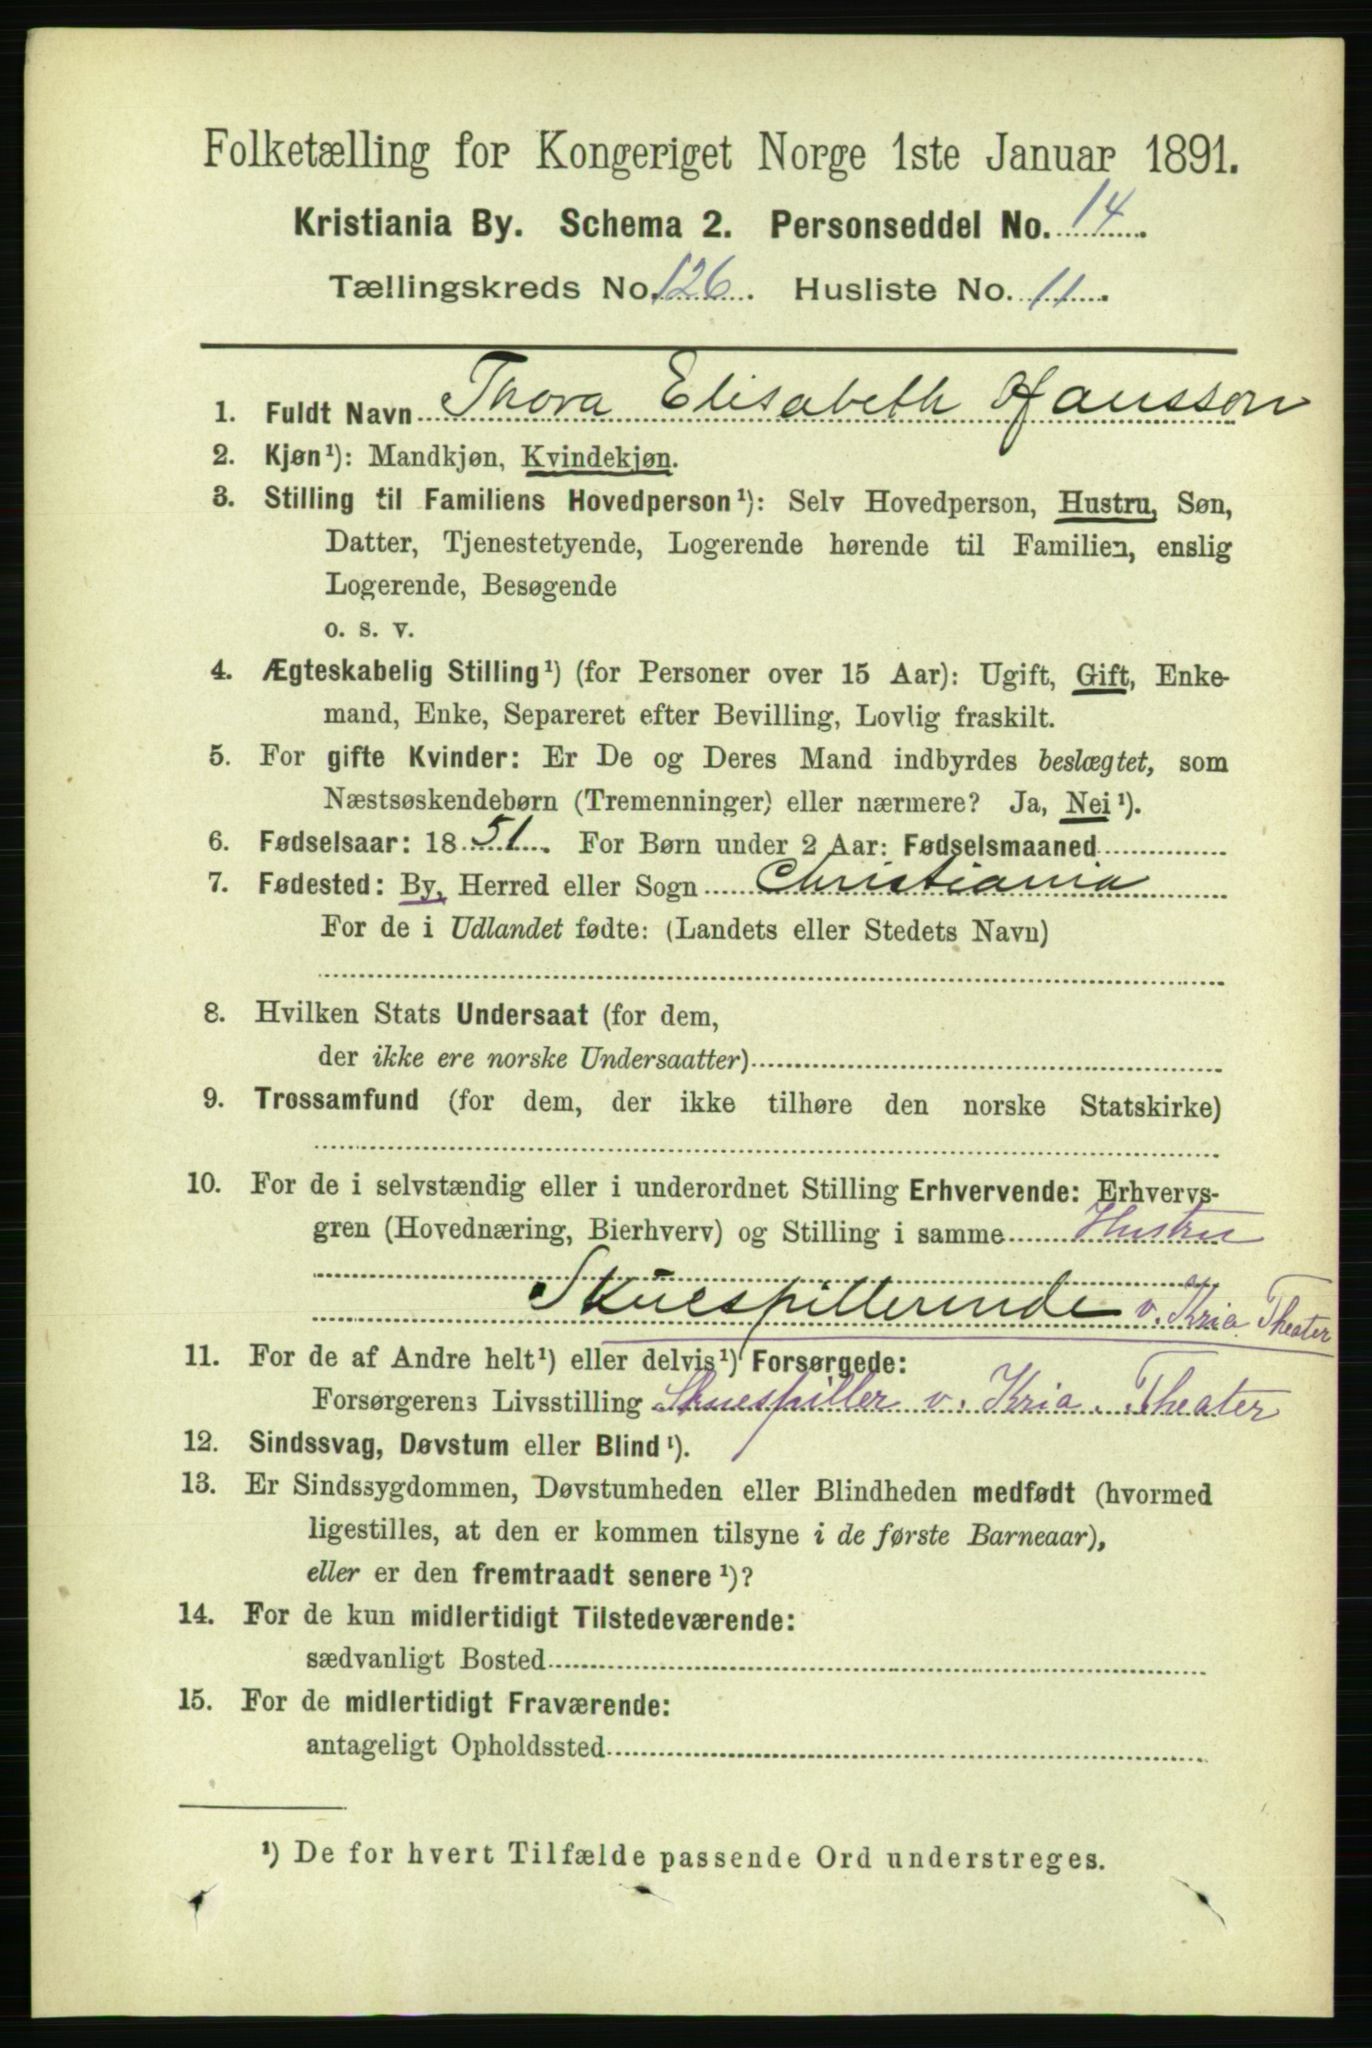 Folketælling for Kongeriget Norge 1ste Januar 1891.
Kristiania By. Schema 2. Personseddel No. 14.
Tællingskreds No. 126. Husliste No. 11.
1. Fuldt Navn Thora Elisabeth Hansson
2. Kjøn¹): Mandkjøn, Kvindekjøn.
3. Stilling til Familiens Hovedperson¹): Selv Hovedperson, Hustru, Søn,
Datter, Tjenestetyende, Logerende hørende til Familien, enslig
Logerende, Besøgende
o. s. v.
4. Ægteskabelig Stilling¹) (for Personer over 15 Aar): Ugift, Gift, Enke-
mand, Enke, Separeret efter Bevilling, Lovlig fraskilt.
5. For gifte Kvinder: Er De og Deres Mand indbyrdes beslægtet, som
Næstsøskendebørn (Tremenninger) eller nærmere? Ja, Nei¹).
6. Fødselsaar: 1851. For Børn under 2 Aar: Fødselsmaaned
7. Fødested: By, Herred eller Sogn Christiania
For de i Udlandet fødte: (Landets eller Stedets Navn)
8. Hvilken Stats Undersaat (for dem,
der ikke ere norske Undersaatter)
9. Trossamfund (for dem, der ikke tilhøre den norske Statskirke)
10. For de i selvstændig eller i underordnet Stilling Erhvervende: Erhvervs-
gren (Hovednæring, Bierhverv) og Stilling i samme Hustru
Skuespillerinde v. Kria Theater
11. For de af Andre helt¹) eller delvis¹) Forsørgede:
Forsørgerens Livsstilling Skuespiller v. Kria. Theater
12. Sindssvag, Døvstum eller Blind¹).
13. Er Sindssygdommen, Døvstumheden eller Blindheden medfødt (hvormed
ligestilles, at den er kommen tilsyne i de første Barneaar),
eller er den fremtraadt senere¹)?
14. For de kun midlertidigt Tilstedeværende:
sædvanligt Bosted
15. For de midlertidigt Fraværende:
antageligt Opholdssted
¹) De for hvert Tilfælde passende Ord understreges.